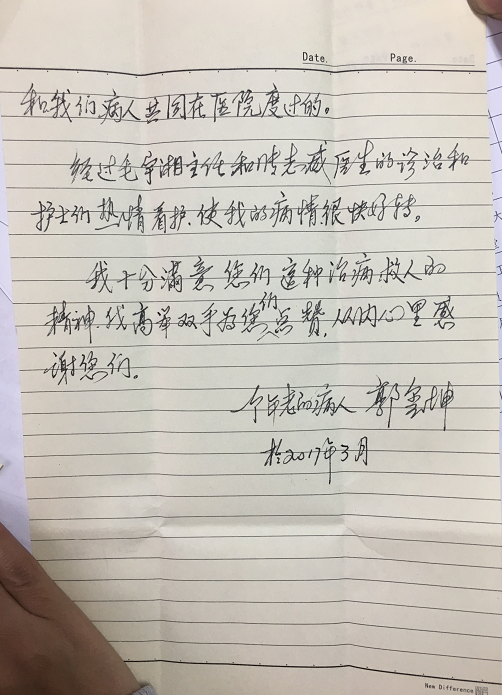 Date. Page.
和我们病人共同在医院度过的。
经过毛宇湘主任和陈志威医生的诊治和
护士们热情看护.使我的病情很快好转。
我十分满意您们这种治病救人的
精神.我高举双手为您们点赞,从内心里感
谢您们。
个年老的病人 郭玺坤
於2017年3月
New Difference